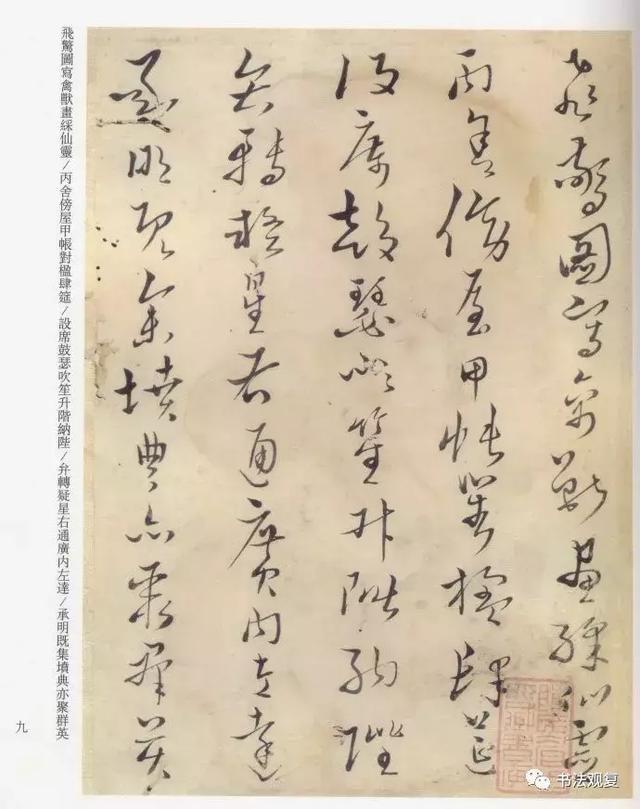 飛驚圖寫禽獸畫綵仙靈
丙舍傍屋甲帳對楹肆筵
設席鼓瑟吹笙升階納陛
弁轉疑星右通廣内左達
承明既集墳典亦聚群英
飛驚圖寫禽獸畫綵仙靈/丙舍傍屋甲帳對楹肆筵/設席鼓瑟吹笙升階納陛/弁轉疑星右通廣内左達/承明既集墳典亦聚群英
九
书法观复